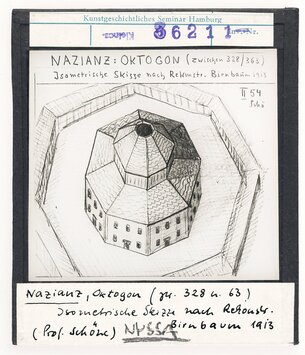 Kunstgeschichtliches Seminar Hamburg
36211
NAZIANZ: OKTOGON (zwischen 328/363)
Isometrische Skizze nach Rekonstr. Birnbaum 1913
II 54
Schö
Nazianz, Oktogon (zw. 328 u. 63)
Isometrische Skizze nach Rekonstr.
(Prof. Schöne) NYSSA Birnbaum 1913